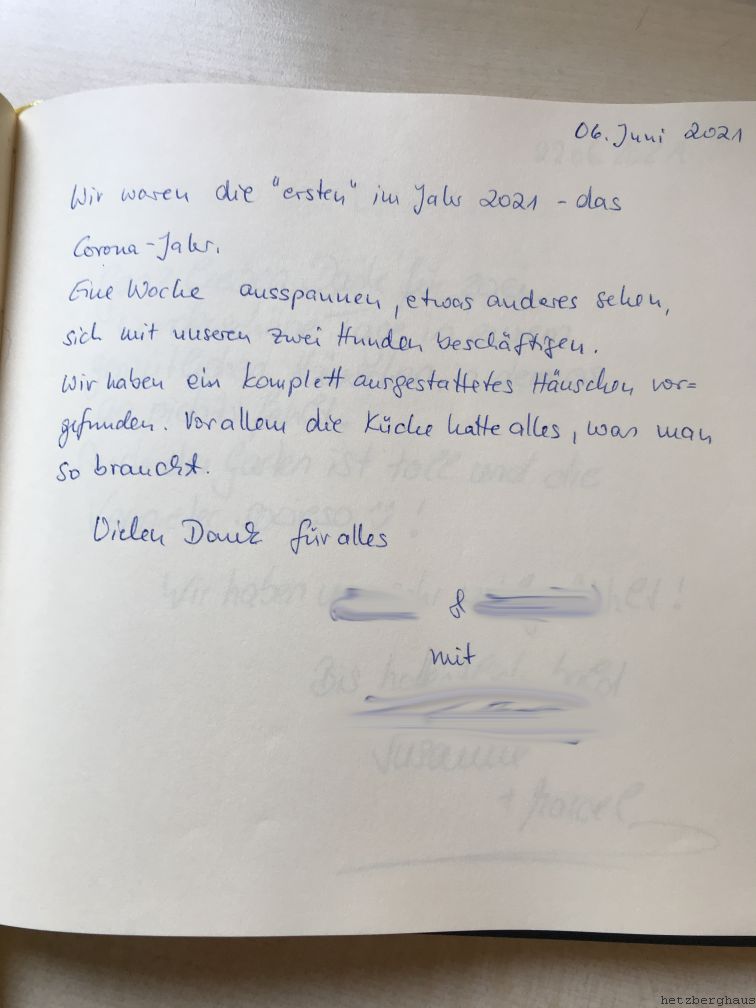 06. Juni 2021
Wir waren die "ersten" im Jahr 2021 - das
Corona-Jahr.
Eine Woche ausspannen, etwas anderes sehen,
sich mit unseren zwei Hunden beschäftigen.
Wir haben ein komplett ausgestattetes Häuschen vor=
gefunden. Vor allem die Küche hatte alles, was man
so braucht.
Vielen Dank für alles
&
mit
hetzberghaus